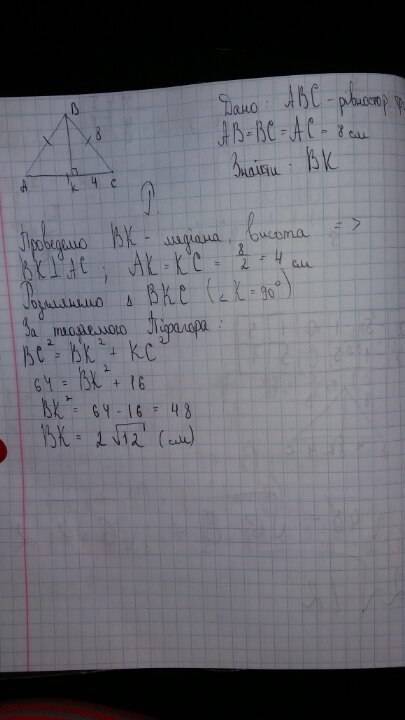 B
8
A
K
4
C
Дано: ABC - рівностор
AB = BC = AC = 8 см
Знайти: BK
Проведемо BK - медіана, висота =>
BK ⊥ AC ; AK = KC = 8/2 = 4 см
Розглянемо Δ BKC (∠K = 90°)
За теоремою Піфагора:
BC² = BK² + KC²
64 = BK² + 16
BK² = 64 - 16 = 48
BK = 2√12 (см)